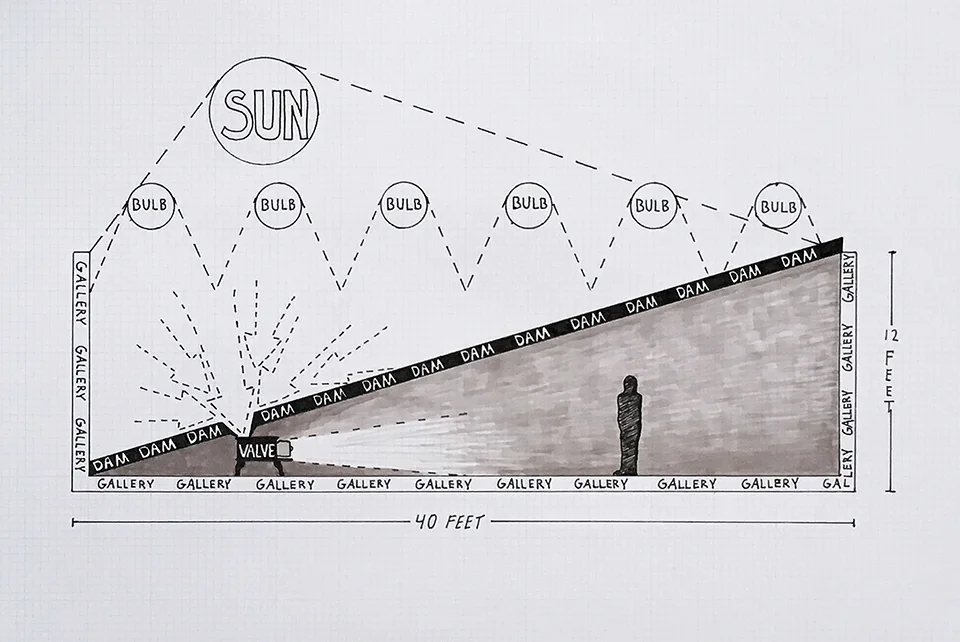 SUN
BULB BULB BULB BULB BULB BULB
GALLERY GALLERY GALLERY
DAM DAM DAM
VALVE
DAM DAM DAM DAM DAM DAM DAM DAM DAM DAM DAM
GALLERY GALLERY GALLERY GALLERY GALLERY GALLERY GALLERY GALLERY GALLERY GALLERY
GALLERY GALLERY GALLERY
12 FEET
40 FEET